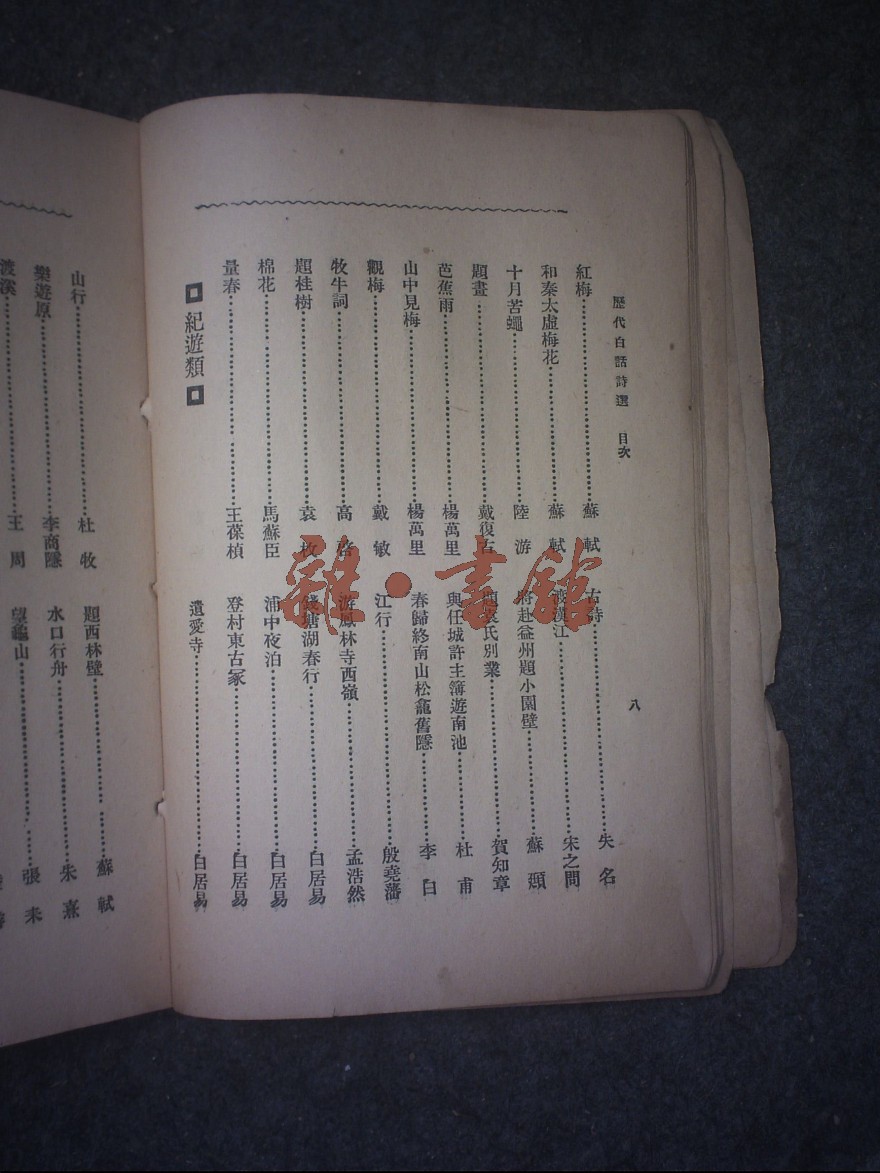 歷代白話詩選 目次 八
紅梅 蘇軾
和秦太虛梅花 蘇軾
十月苦蠅 陸游
題畫 戴復古
芭蕉雨 楊萬里
山中見梅 楊萬里
觀梅 戴敏
牧牛詞 高啓
題桂樹 袁枚
棉花 馬蘇臣
量春 王葆楨
紀遊類
古詩 失名
渡漢江 宋之問
將赴益州題小園壁 蘇頲
題袁氏別業 賀知章
與任城許主簿遊南池 杜甫
春歸終南山松龕舊隱 李白
江行 殷堯藩
游鳳林寺西嶺 孟浩然
錢塘湖春行 白居易
浦中夜泊 白居易
登村東古冢 白居易
遺愛寺 白居易
山行 杜牧
樂遊原 李商隱
渡溪 王周
題西林壁 蘇軾
水口行舟 朱熹
望龜山 張耒
雜·書館